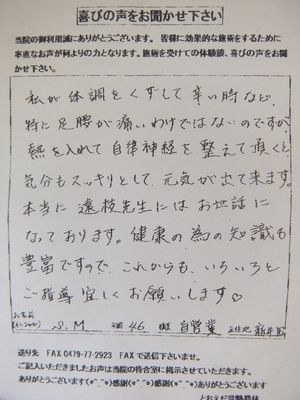 喜びの声をお聞かせ下さい
当院の御利用誠にありがとうございます。皆様に効果的な施術をするために
率直なお声が何よりの力となります。施術を受けての体験談、喜びの声をお聞
かせ下さい。
私が体調をくずして辛い時など、
特に足腰が痛いわけではないのですが、
熱を入れて自律神経を整えて頂くと
気分もスッキリとして、元気が出て来ます。
本当に遠枝先生にはお世話に
なっております。健康の為の知識も
豊富ですので、これからも、いろいろと
ご指導宜しくお願いします♡
お名前
S.M 46 自営業
送り先 FAX 0479-77-2923 FAXで送信下さいませ。
ご記入いただきましたお声は当院の待合室に掲示させていただきます。
ありがとうございます(*^_^*)感謝(*^_^*)感謝ありがとうございます